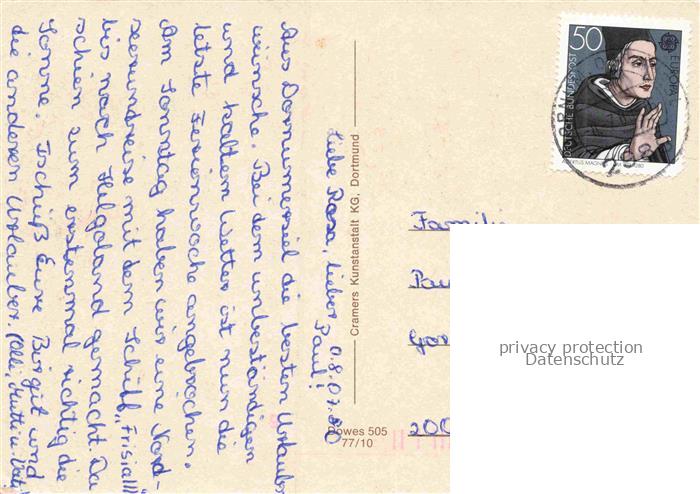 Liebe Rosa, lieber Paul!
0.8.07.80
Aus Dornumersiel die besten Urlaubs-
wünsche. Bei dem unbeständigen
und kaltem Wetter ist nun die
letzte Ferienwoche angebrochen.
Am Sonntag haben wir eine Nord-
seerundreise mit dem Schiff „Frisia III"
bis nach Helgoland gemacht. Da
schien zum erstenmal richtig die
Sonne. Tschüß Eure Birgit und
die anderen Urlauber. (Olli, Mutti u. Vati)
Cramers Kunstanstalt KG, Dortmund
owes 505
77/10
50
DEUTSCHE BUNDESPOST
EUROPA
Familie
Pau
200
privacy protection
Datenschutz